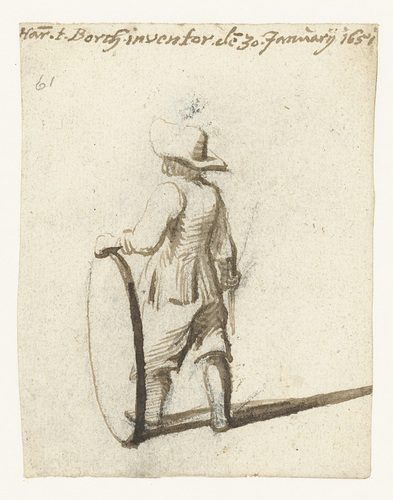 Har. t. Borch. inventor. dē 30. Januarij 1651
61